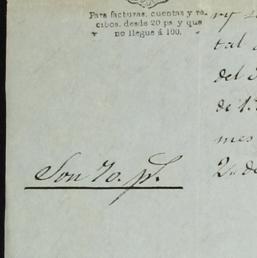 Para facturas, cuentas y re-
cibos, desde 20 ps. y que
no llegue á 100.
ry
tal
del
de 1.
mes
2. de
Son 70. ps.